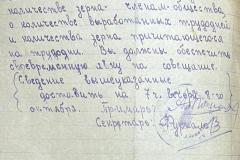 количестве зерна - членам общества,
о количестве выработанных трудодней
и количества зерна причитающегося
на трудодни. Вы должны обеспечить
своевременную явку на совещание.
Сведение вышеуказанные
доставить на 7 ч. вечера, 8-го
октября.
Секретарь: